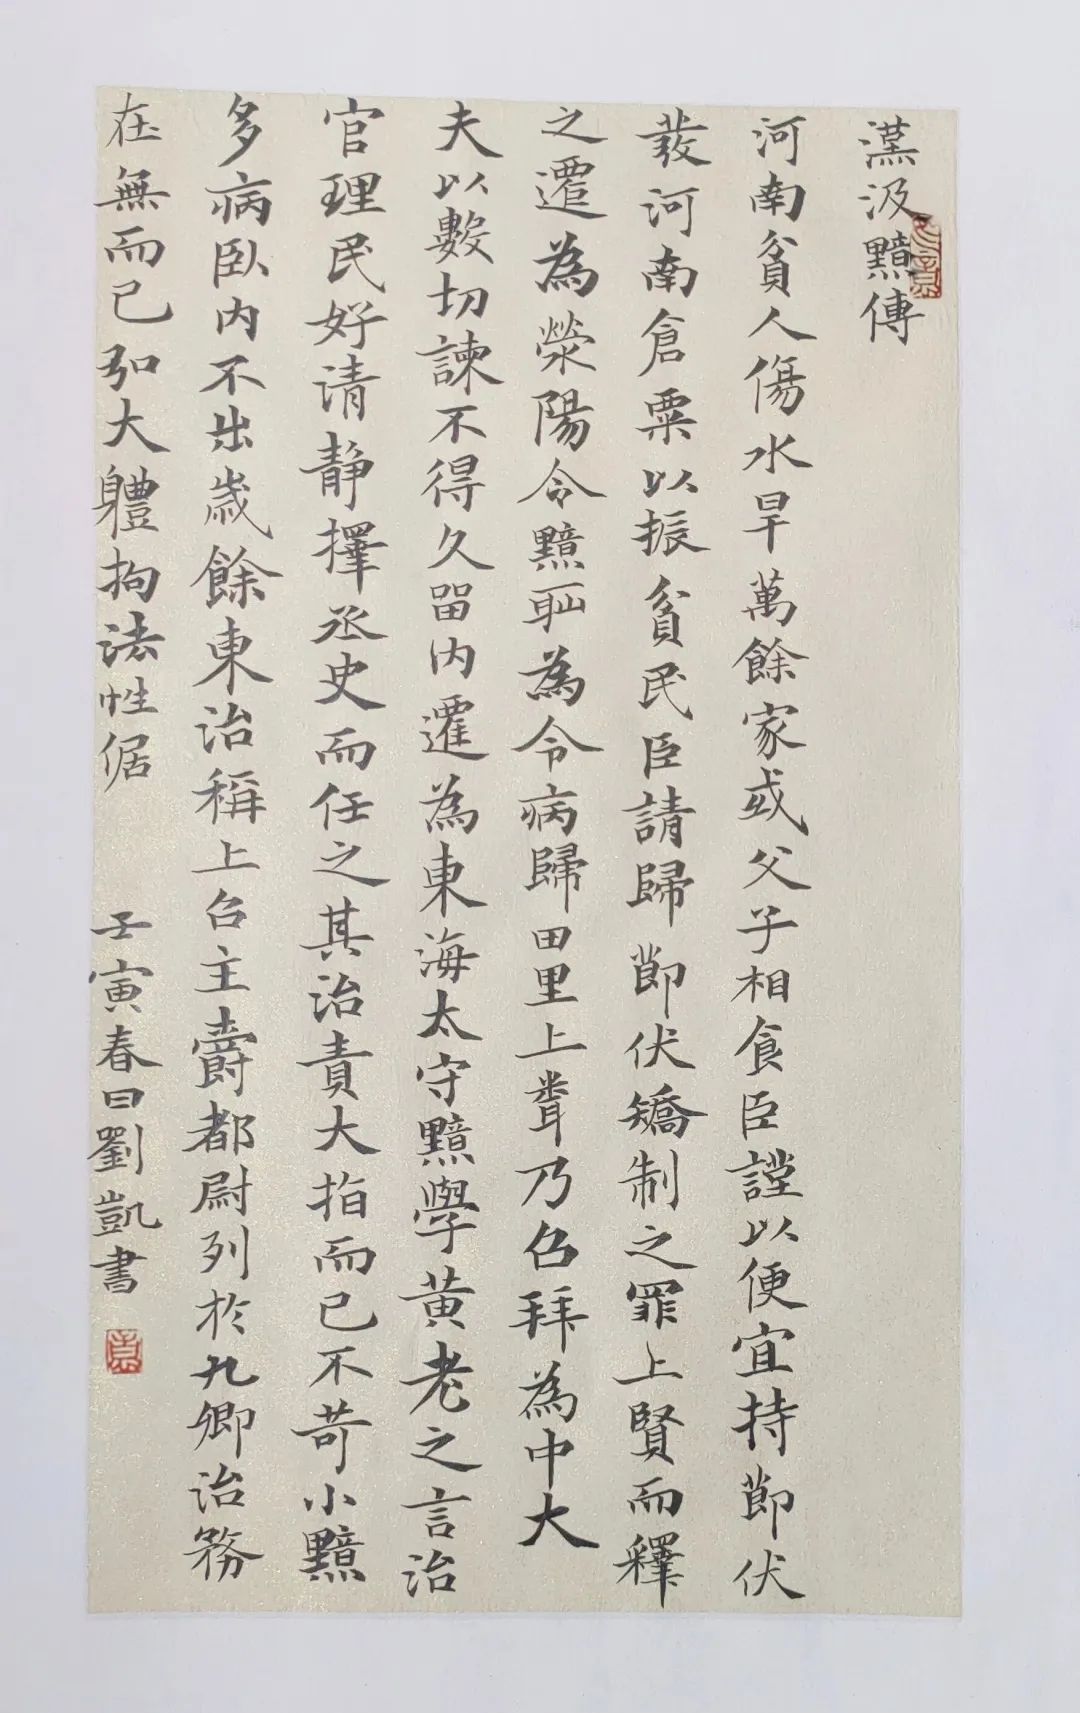 漢汲黯傳
河南貧人傷水旱萬餘家或父子相食臣謹以便宜持節伏
發河南倉粟以振貧民臣請歸節伏矯制之罪上賢而釋
之遷為滎陽令黯恥為令病歸田里上聞乃召拜為中大
夫以數切諫不得久留內遷為東海太守黯學黃老之言治
官理民好清靜擇丞史而任之其治責大指而已不苛小黯
多病臥內不出歲餘東治稱上召主爵都尉列於九卿治務
在無而已弘大體拘法性倨
壬寅春日劉凱書